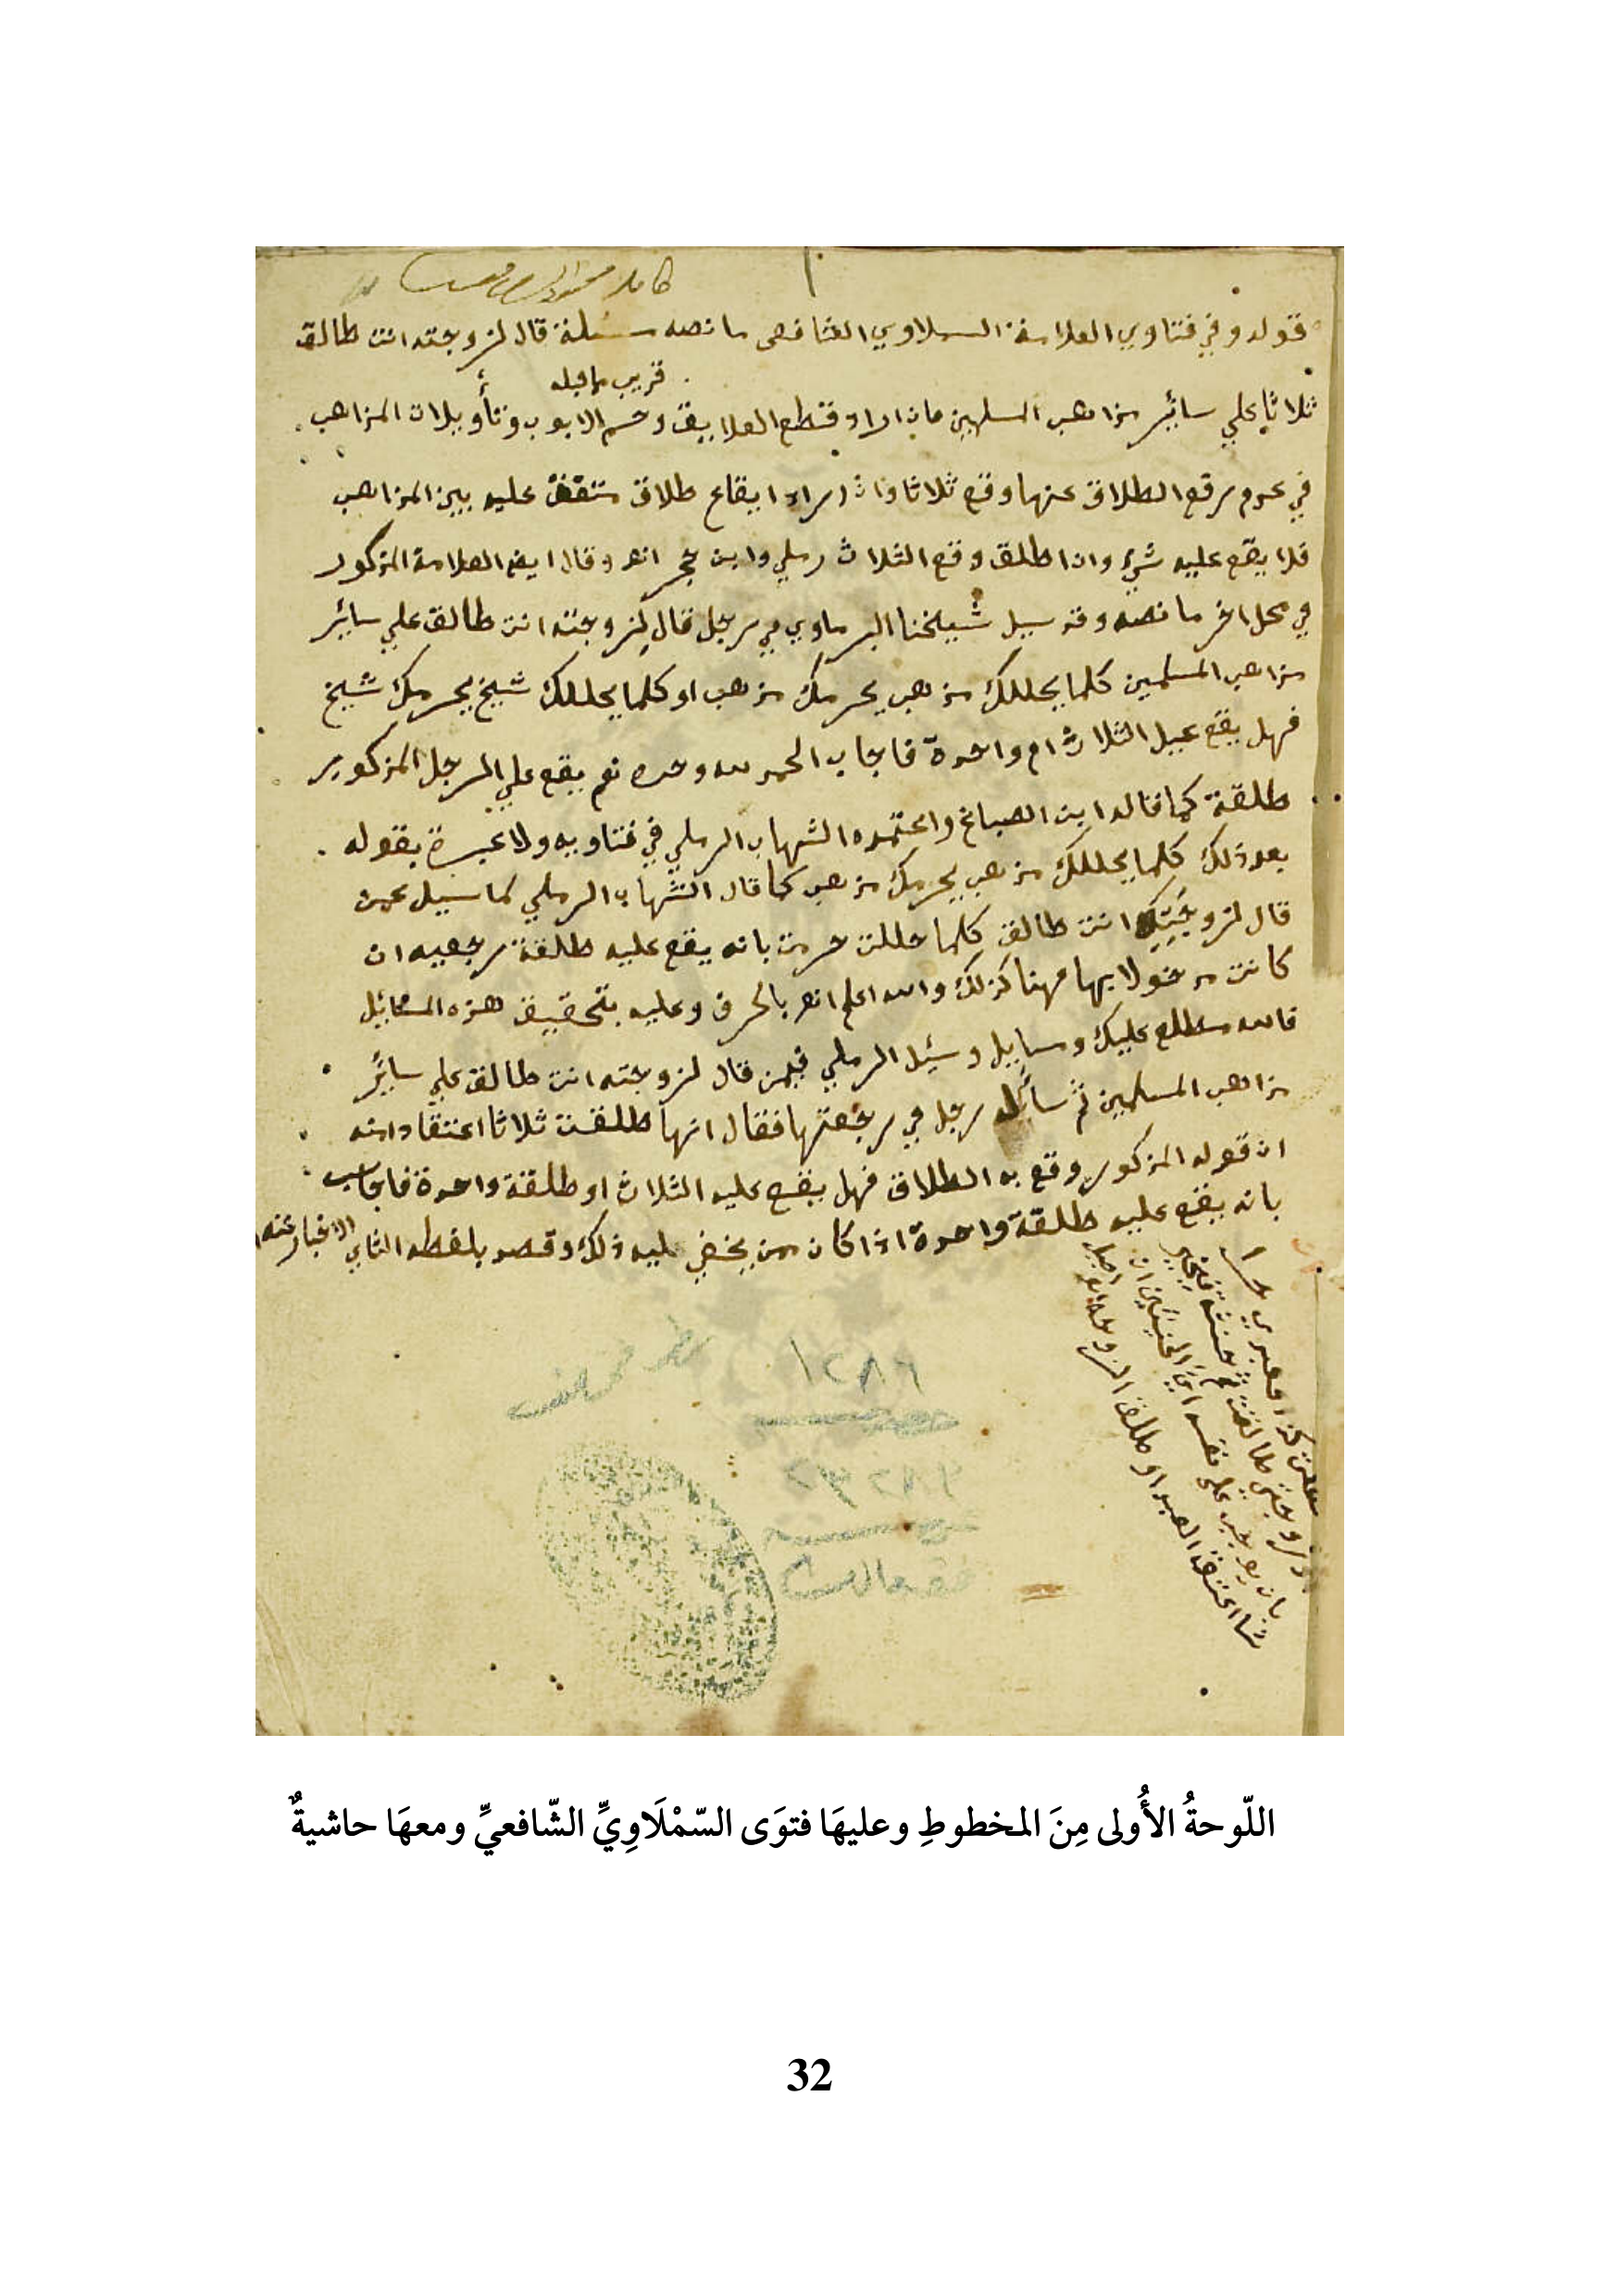 قوله وفي فتاوي العلامة السملاوي الشافعى ما نصه مسئلة قال لزوجته انت طالق
قريب مما قبله
ثلاثا علي سائر مذاهب المسلمين فان اراد قطع العلايق وحسم الابوب وتأويلات المذاهب
في عدم رفع الطلاق عنها وقع ثلاثا وان اراد ايقاع طلاق متفق عليه بين المذاهب
فلا يقع عليه شيء وان اطلق وقع الثلاث رملي وابن حجر اهـ وقال ايضا العلامة المذكور
في محل اخر ما نصه وقد سيل شيخنا البرماوي في رجل قال لزوجته انت طالق علي سائر
مذاهب المسلمين كلما يحللك مذهب يحرمك مذهب او كلما يحللك شيخ يحرمك شيخ
فهل يقع عليه الثلاث ام واحدة فاجاب الحمد لله وحده نعم يقع علي الرجل المذكور
طلقة كما قاله ابن الصباغ واعتمده الشهاب الرملي في فتاويه ولا عبرة بقوله
بعد ذلك كلما يحللك مذهب يحرمك مذهب كما قال الشهاب الرملي لما سيل عمن
قال لزوجته انت طالق كلما حللت حرمت بانه يقع عليه طلقة رجعيه ان
كانت مدخولا بها فهنا كذلك والله اعلم اهـ بالحرف وعليه بتحقيق هذه المسائل
فالله مطلع عليك وسايل وسئل الرملي فيمن قال لزوجته انت طالق علي سائر
مذاهب المسلمين ثم سأله رجل في رجعتها فقال انها طلقت ثلاثا اعتقادا منه
ان قوله المذكور وقع به الطلاق فهل يقع عليه الثلاث او طلقة واحدة فاجاب
بانه يقع عليه طلقة واحدة اذا كان ممن يخفي عليه ذلك وقصد بلفظه الثاني الاخبار عنه
كذا فعبدي حر
وزوجتي طالق حنث فيخير
بان يوجب على نفسه اي الحنثين ان
شا اعتق العبد او طلق الزوجة
١٢٨٦
اللّوحةُ الأُولى مِنَ المخطوطِ وعليهَا فتوَى السّمْلَاوِيِّ الشّافعيِّ ومعهَا حاشيةٌ
32